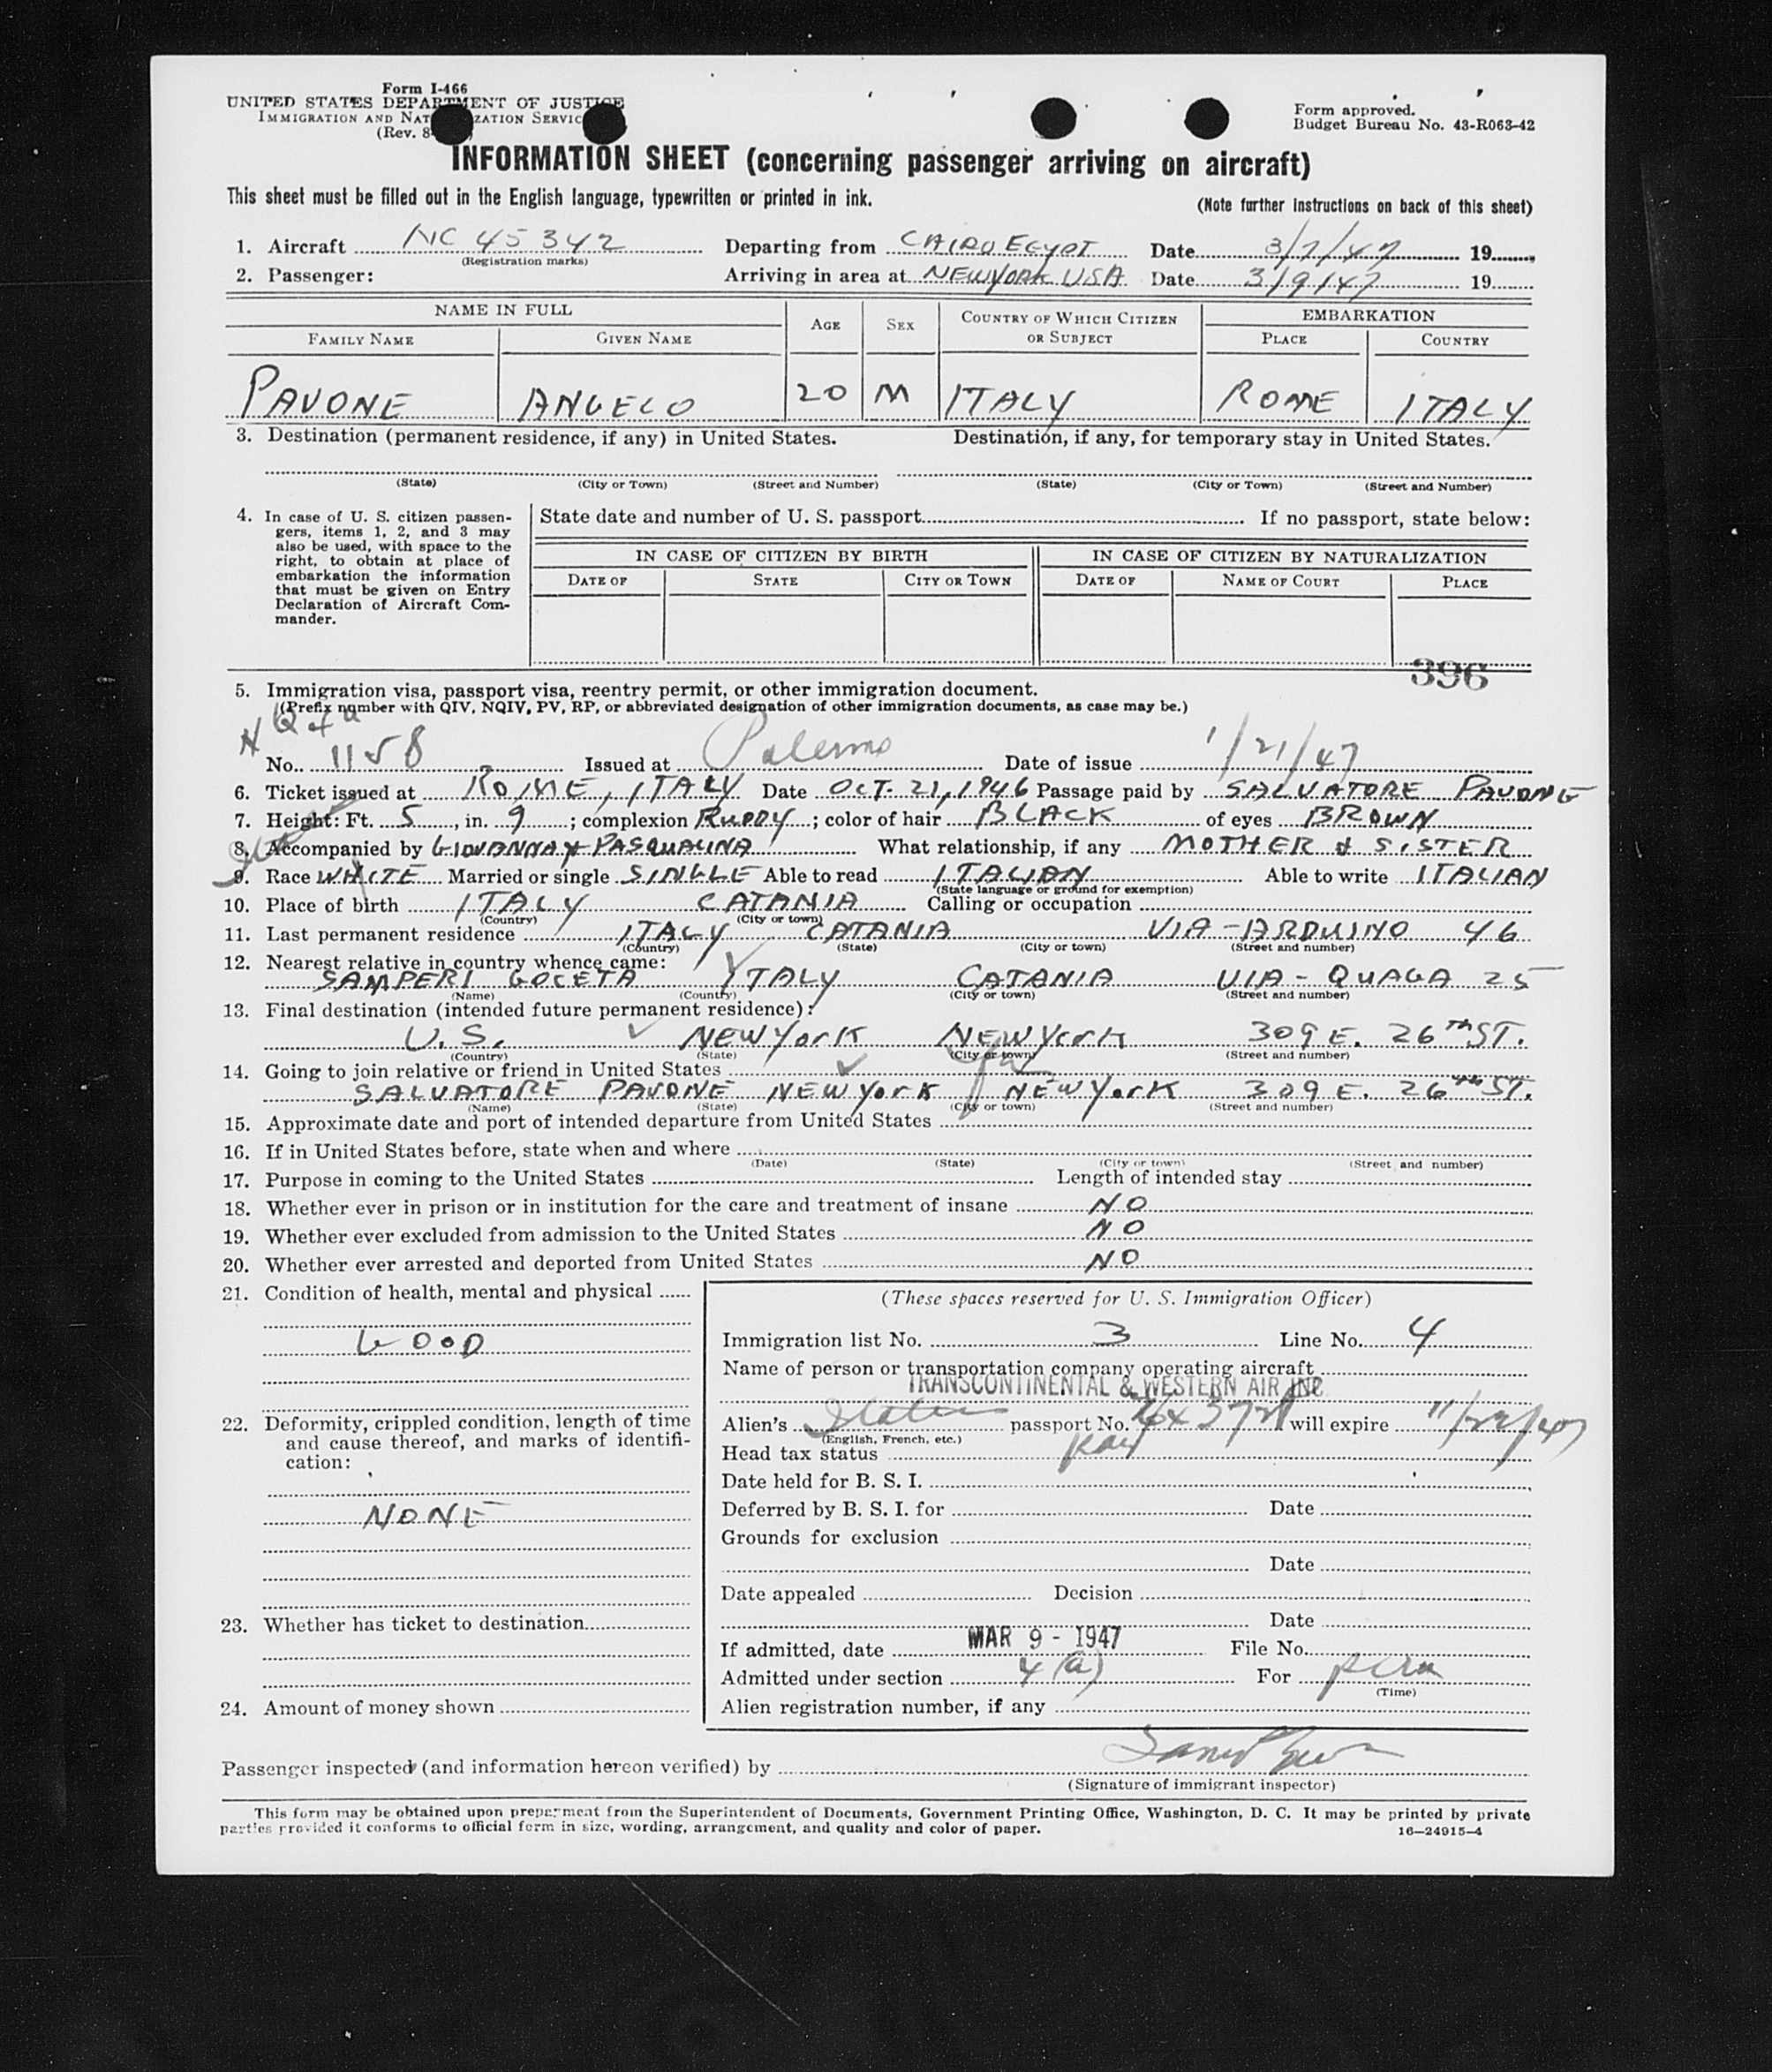 Form I-466
UNITED STATES DEPARTMENT OF JUSTICE
IMMIGRATION AND NAT ZATION SERVIC
(Rev. 8-
Form approved.
Budget Bureau No. 43-R063-42
INFORMATION SHEET (concerning passenger arriving on aircraft)
This sheet must be filled out in the English language, typewritten or printed in ink.
(Note further instructions on back of this sheet)
1. Aircraft NC 45342 Departing from CAIRO EGYPT Date 3/7/47 19
(Registration marks)
2. Passenger: Arriving in area at NEW YORK USA Date 3/9/47 19
NAME IN FULL AGE SEX COUNTRY OF WHICH CITIZEN OR SUBJECT EMBARKATION
FAMILY NAME GIVEN NAME PLACE COUNTRY
PAVONE ANGELO 20 M ITALY ROME ITALY
3. Destination (permanent residence, if any) in United States. Destination, if any, for temporary stay in United States.
(State) (City or Town) (Street and Number) (State) (City or Town) (Street and Number)
4. In case of U. S. citizen passen-
gers, items 1, 2, and 3 may
also be used, with space to the
right, to obtain at place of
embarkation the information
that must be given on Entry
Declaration of Aircraft Com-
mander.
State date and number of U. S. passport If no passport, state below:
IN CASE OF CITIZEN BY BIRTH IN CASE OF CITIZEN BY NATURALIZATION
DATE OF STATE CITY OR TOWN DATE OF NAME OF COURT PLACE
396
5. Immigration visa, passport visa, reentry permit, or other immigration document.
(Prefix number with QIV, NQIV, PV, RP, or abbreviated designation of other immigration documents, as case may be.)
No. 1158 Issued at Palermo Date of issue 1/21/47
6. Ticket issued at ROME, ITALY Date OCT. 21, 1946 Passage paid by SALVATORE PAVONE
7. Height: Ft. 5, in. 9; complexion RUDDY; color of hair BLACK of eyes BROWN
8. Accompanied by GIOVANNA & PASQUALINA What relationship, if any MOTHER & SISTER
9. Race WHITE Married or single SINGLE Able to read ITALIAN Able to write ITALIAN
(State language or ground for exemption)
10. Place of birth ITALY CATANIA Calling or occupation
(Country) (City or town)
11. Last permanent residence ITALY CATANIA VIA-ARDUINO 46
(Country) (State) (City or town) (Street and number)
12. Nearest relative in country whence came:
SAMPERI GOCETA ITALY CATANIA VIA-QUAGA 25
(Name) (Country) (City or town) (Street and number)
13. Final destination (intended future permanent residence):
U.S. NEW YORK NEW YORK 309 E. 26TH ST.
(Country) (State) (City or town) (Street and number)
14. Going to join relative or friend in United States
SALVATORE PAVONE NEW YORK NEW YORK 309 E. 26TH ST.
(Name) (State) (City or town) (Street and number)
15. Approximate date and port of intended departure from United States
16. If in United States before, state when and where
(Date) (State) (City or town) (Street and number)
17. Purpose in coming to the United States Length of intended stay
18. Whether ever in prison or in institution for the care and treatment of insane NO
19. Whether ever excluded from admission to the United States NO
20. Whether ever arrested and deported from United States NO
21. Condition of health, mental and physical
GOOD
22. Deformity, crippled condition, length of time
and cause thereof, and marks of identifi-
cation:
NONE
23. Whether has ticket to destination
24. Amount of money shown
(These spaces reserved for U. S. Immigration Officer)
Immigration list No. 3 Line No. 4
Name of person or transportation company operating aircraft
TRANSCONTINENTAL & WESTERN AIR INC
Alien's Italian passport No. will expire 11/22/47
(English, French, etc.)
Head tax status
Date held for B. S. I.
Deferred by B. S. I. for Date
Grounds for exclusion
Date
Date appealed Decision
Date
If admitted, date MAR 9 - 1947 File No.
Admitted under section 4 (a) For perm
(Time)
Alien registration number, if any
Passenger inspected (and information hereon verified) by
(Signature of immigrant inspector)
This form may be obtained upon prepayment from the Superintendent of Documents, Government Printing Office, Washington, D. C. It may be printed by private
parties provided it conforms to official form in size, wording, arrangement, and quality and color of paper.
16—24915-4